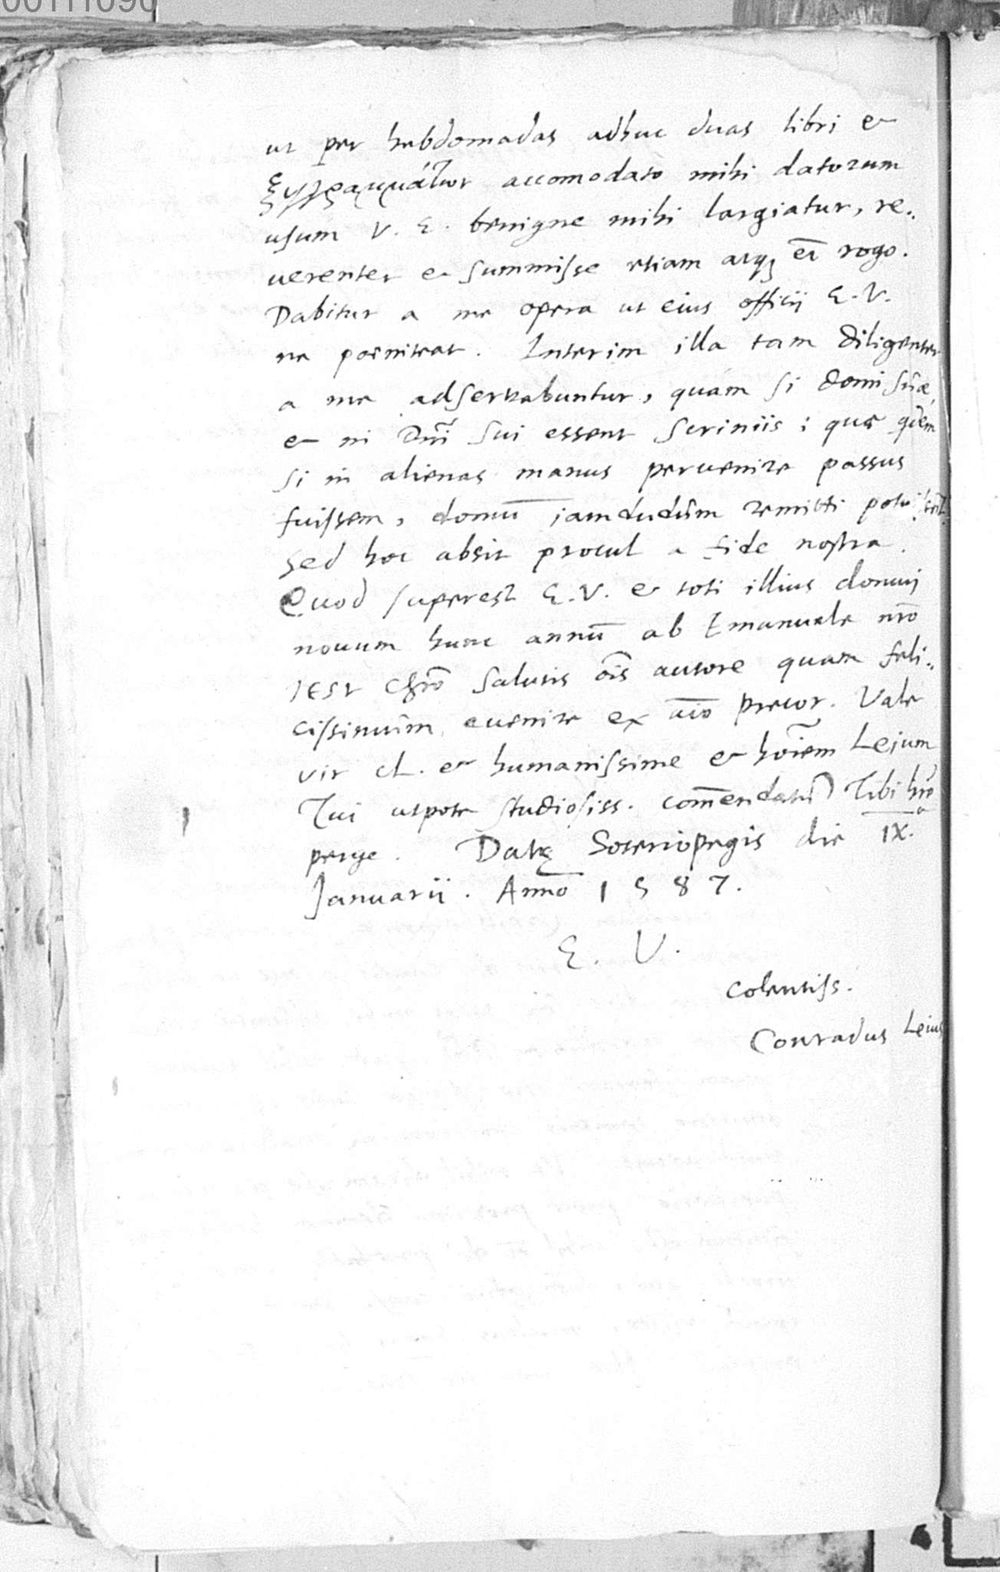 00111090
ut per hebdomadas adhuc duas libri et
συγγραμμάτων accomodatò mihi datorum
usum V. E. benigne mihi largiatur, re„
uerenter et summisse etiam atq; etiā rogo.
Dabitur a me opera ut eius officij E. V.
ne poeniteat. Interim illa tam diligenter
a me adseruabuntur, quàm si domi suae,
et in Dni sui essent scriniis: quae qdem
si in alienas manus peruenire passus
fuissem, domū iamdudùm remitti
Sed hoc absit procul a fide nostra.
Quod superest E. V. et toti illius domui
nouum hunc annū ab Emanuele nrō
IESV Chrō salutis oīs autore quam feli„
cissimùm euenire ex aīo precor. Vale
vir cl. et humanissime et hoīem Leium
Tui utpote studiosiss. comendatū Tibi hrē
perge. Datę Soteriopegis die IX.
Januarij. Anno 1587.
E. V.
colentiss.
Conradus Leius